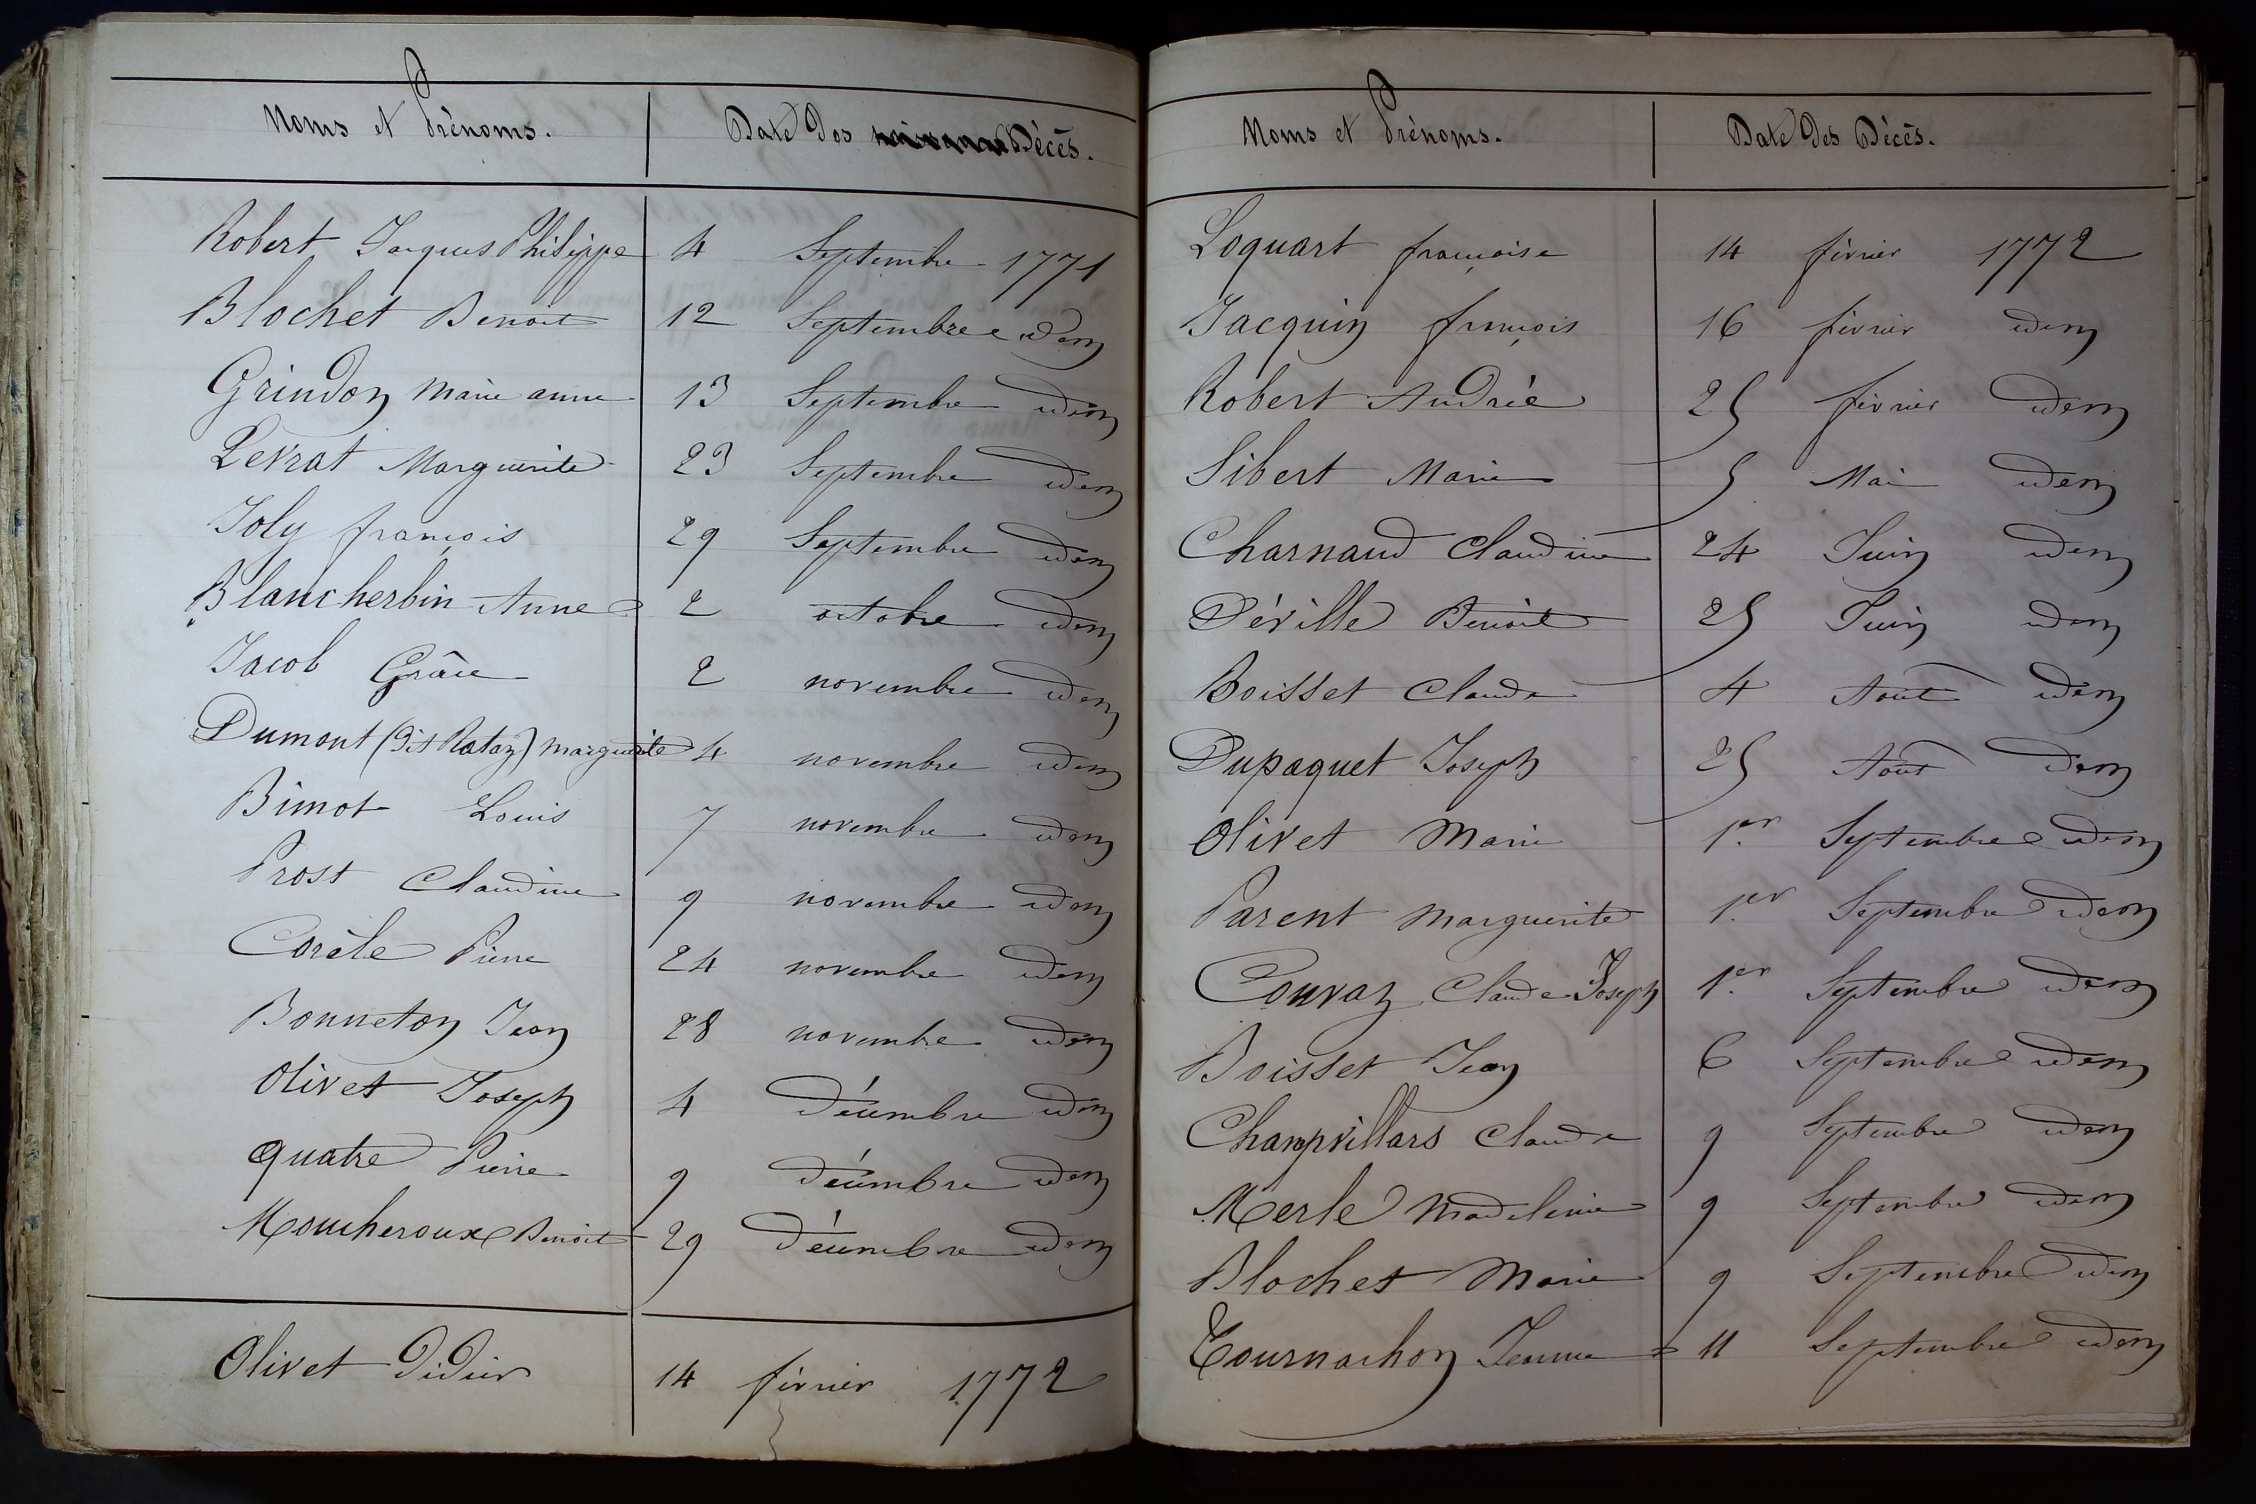 Noms et Prénoms. Date des Décès.
Robert Jacques Philippe 4 Septembre 1771
Blochet Benoit 12 Septembre idem
Grindon Marie anne 13 Septembre idem
Levrat Marguerite 23 Septembre idem
Joly françois 29 Septembre idem
Blancherbin Anne 2 octobre idem
Jacob Grâce 2 novembre idem
Dumont (dit Raton) marguerite 4 novembre idem
Bimot Louis 7 novembre idem
Prost Claudine 9 novembre idem
Corèle Pierre 24 novembre idem
Bonneton Jean 28 novembre idem
Olivet Joseph 4 décembre idem
Quatre Pierre 9 décembre idem
Moucheroux Benoit 29 décembre idem
Olivet didier 14 février 1772
Noms et Prénoms. Date des Décès.
Loquart françoise 14 février 1772
Jacquin françois 16 février idem
Robert Andrée 25 février idem
Sibert Marie 5 Mai idem
Charnaud Claudine 24 Juin idem
Déville Benoit 25 Juin idem
Boisset Claude 4 Aout idem
Dupaquet Joseph 25 Aout idem
Olivet Marie 1er Septembre idem
Parent marguerite 1er Septembre idem
Convaz Claude Joseph 1er Septembre idem
Boisset Jean 6 Septembre idem
Champvillars Claude 9 Septembre idem
Merle Madeleine 9 Septembre idem
Blochet Marie 9 Septembre idem
Tournachon Jeanne 11 Septembre idem